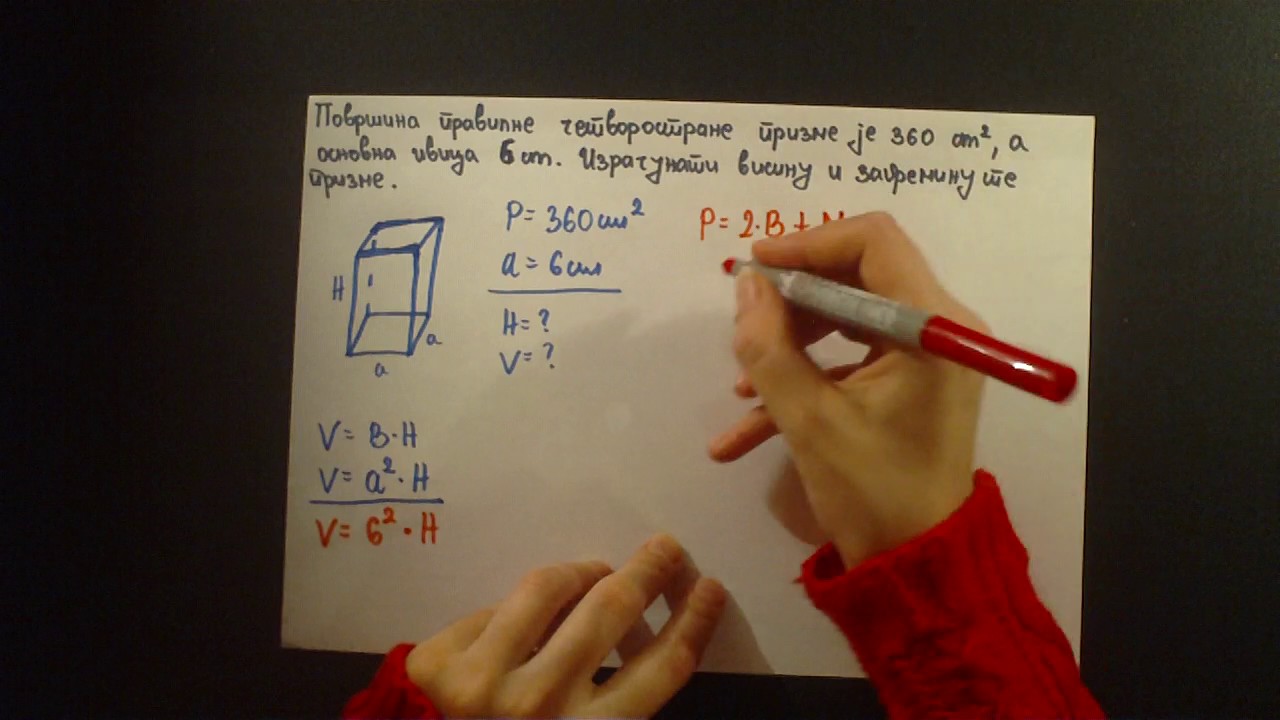 Површина правилне четворостране призме је 360 cm², а
основна ивица 6 cm. Израчунати висину и запремину те
призме.
H
a
a
P = 360 cm²
a = 6 cm
H = ?
V = ?
V = B·H
V = a²·H
V = 6²·H
P = 2·B +